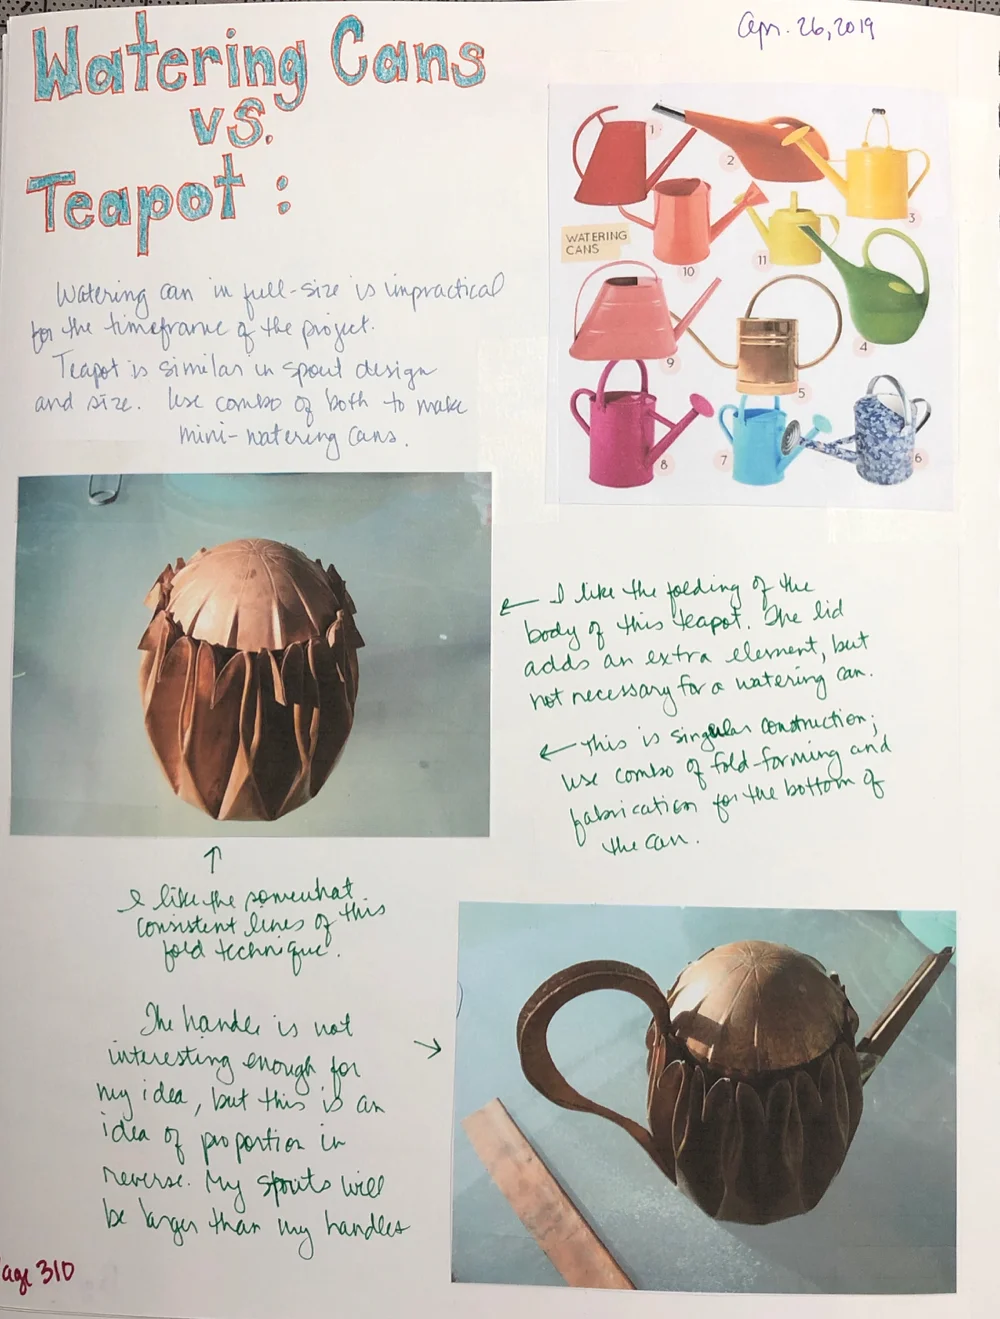 Apr. 26, 2019
Watering Cans
vs.
Teapot :
Watering can in full-size is impractical
for the timeframe of the project.
Teapot is similar in spout design
and size. Use combo of both to make
mini-watering cans.
1
2
3
WATERING
CANS
10
11
4
9
5
8
7
6
← I like the folding of the
body of this teapot. The lid
adds an extra element, but
not necessary for a watering can.
← This is singular construction;
use combo of fold-forming and
fabrication for the bottom of
the can.
↑
I like the somewhat
consistent lines of this
fold technique.
The handle is not →
interesting enough for
my idea, but this is an
idea of proportion in
reverse. My spouts will
be larger than my handles
age 310